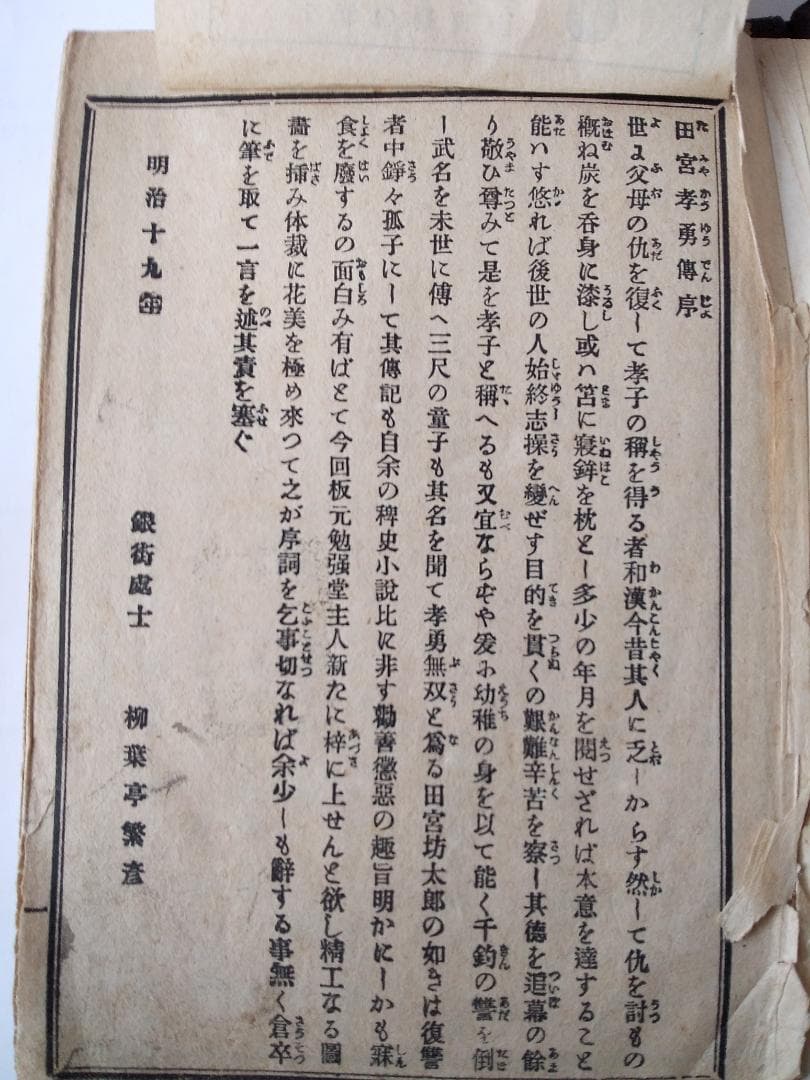 田宮孝勇傳序
世よ父母の仇を復して孝子の稱を得る者和漢今昔其人に乏しからす然して仇を討もの
概ね炭を呑身に漆し或ハ笘に寢鉾を枕とし多少の年月を閲せざれば本意を達すること
能ハす悠れば後世の人始終志操を變ぜす目的を貫くの艱難辛苦を察し其德を追慕の餘
り敬ひ尊みて是を孝子と稱へるも又宜ならずや爰ふ幼稚の身を以て能く千鈞の讐を倒
し武名を末世に傳へ三尺の童子も其名を聞て孝勇無双と爲る田宮坊太郎の如きは復讐
者中錚々孤子にして其傳記も自余の稗史小說比に非す勸善懲惡の趣旨明かにしかも寐
食を廢するの面白み有ばとて今回板元勉强堂主人新たに梓に上せんと欲し精工なる圖
畵を揷み体裁に花美を極め來つて之が序詞を乞事切なれば余少しも辭する事無く倉卒
に筆を取て一言を述其責を塞ぐ
明治十九年
銀街處士 柳葉亭繁彦
一